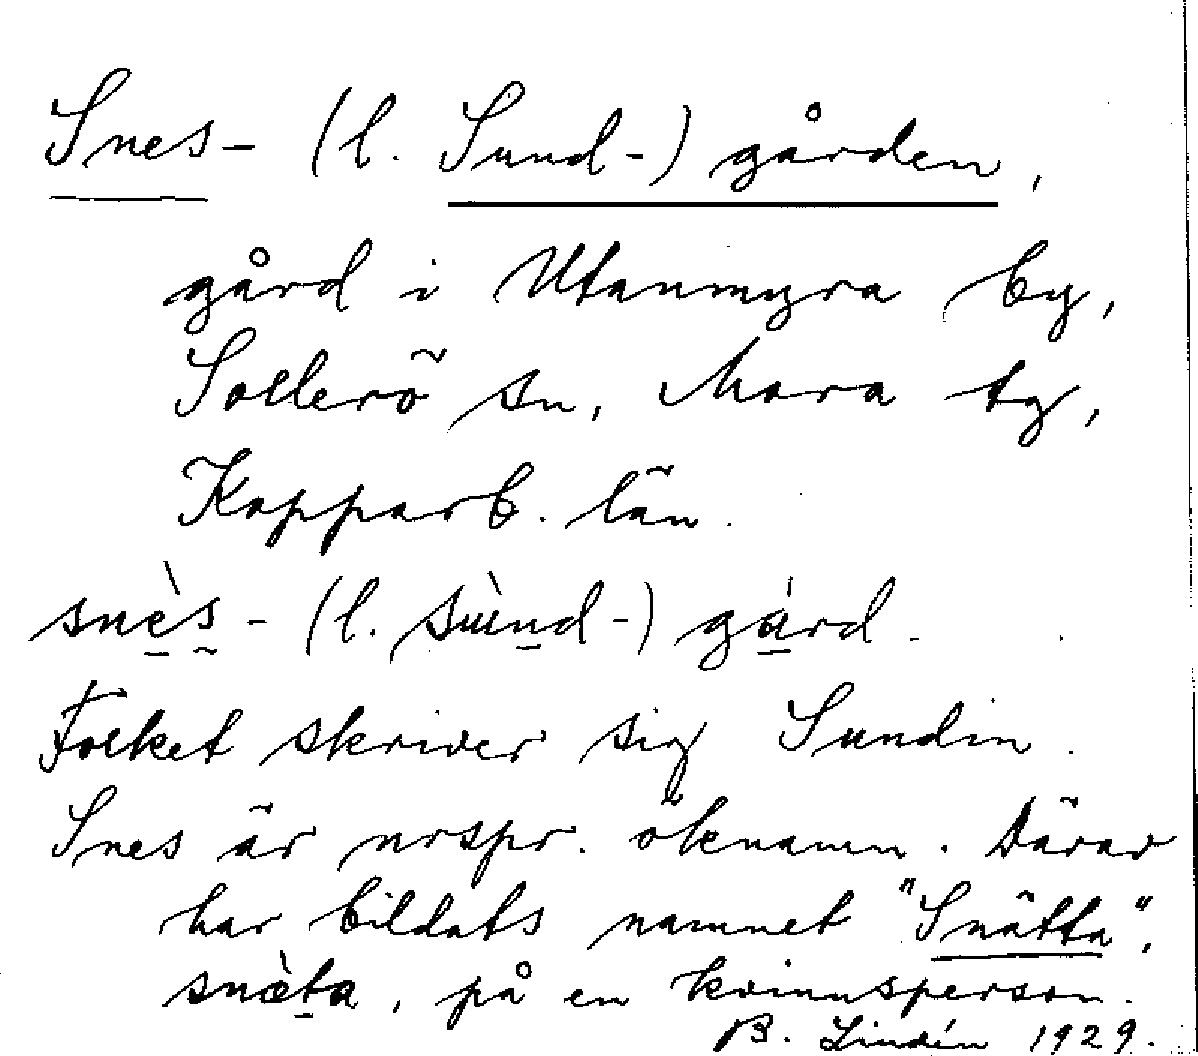 Snes- (l. Sund-) gården,
gård i Utanmyra by,
Sollerö sn, Mora tg,
Kopparb. län.
snès- (l. sùnd-) gárd.
Folket skriver sig Sundin.
Snes är urspr. öknamn. Därav
har bildats namnet "Snätta",
snæ̀ta, på en kvinnsperson.
B. Lindén 1929.